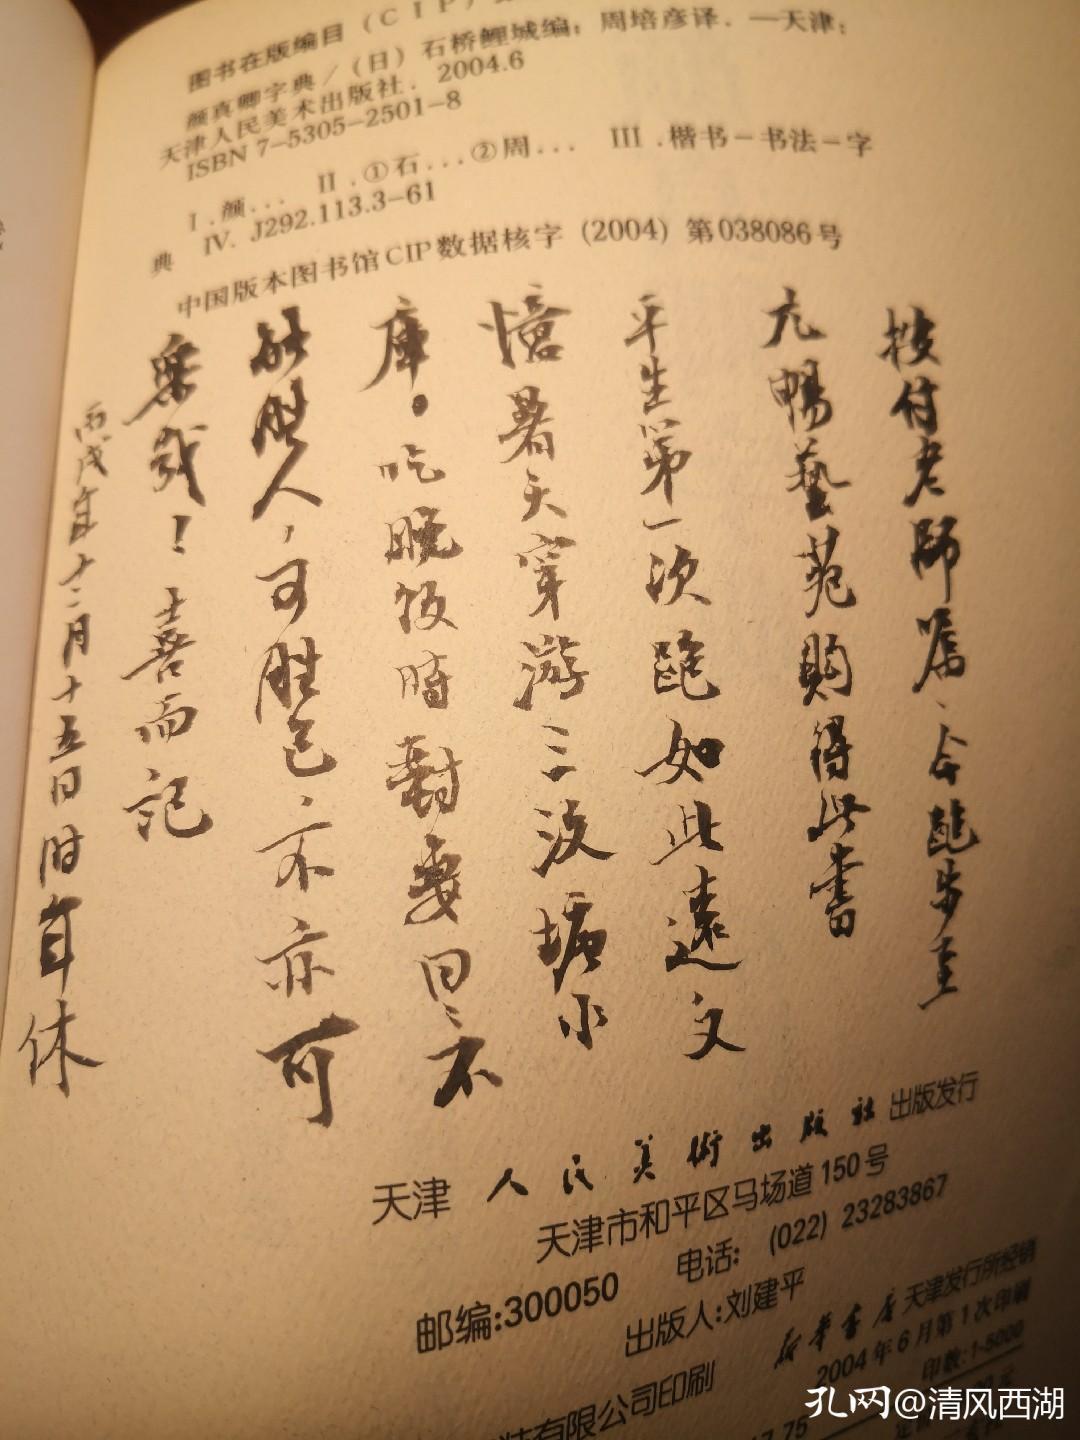 图书在版编目(CIP)
颜真卿字典/(日)石桥鲤城编;周培彦译.—天津:
天津人民美术出版社.2004.6
ISBN 7-5305-2501-8
Ⅰ.颜... Ⅱ.①石...②周... Ⅲ.楷书-书法-字
典 Ⅳ.J292.113.3-61
中国版本图书馆CIP数据核字(2004)第038086号
按付老師嘱、今跑步至
九暢藝苑购得此書
平生第一次跑如此遠文
憶暑天穿游三汲塘小
庫。吃晚饭時對妻曰:不
能胜人,可胜己、不亦可
樂哉!喜而記
丙戌年十二月十五日时年休
天津人民美術出版社出版发行
天津市和平区马场道150号
邮编:300050 电话:(022)23283867
出版人:刘建平
新華書店天津发行所经销
有限公司印刷 2004年6月第1次印刷
印数:1-5000
孔网@清风西湖